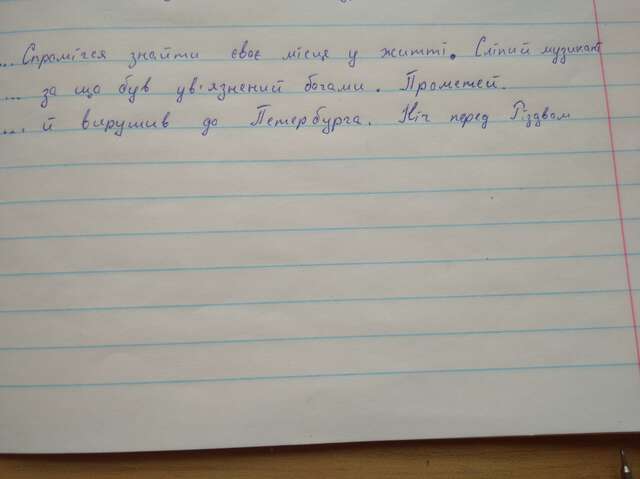 ... Спромігся знайти своє місце у житті. Сліпий музикант
... за що був ув'язнений богами. Прометей.
... й вирушив до Петербурга. Ніч перед Різдвом